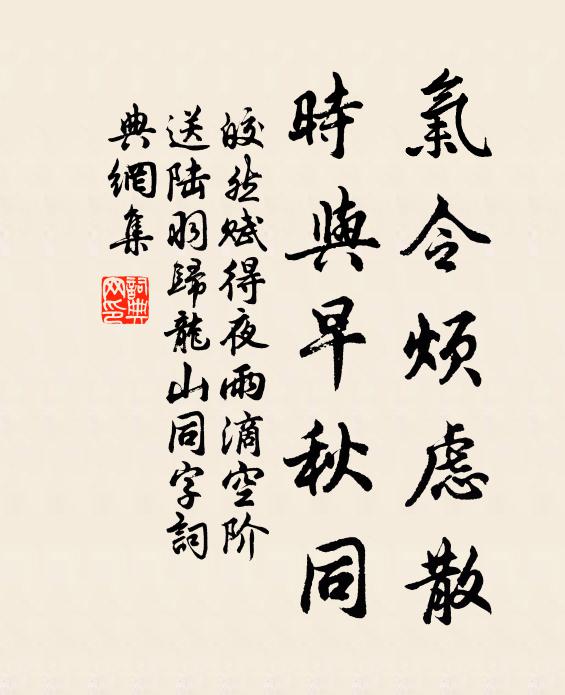 氣合煩慮散
時與早秋同
皎然賦得夜雨滴空阶
送陆羽歸龍山同字詞
典網集
詞典网印